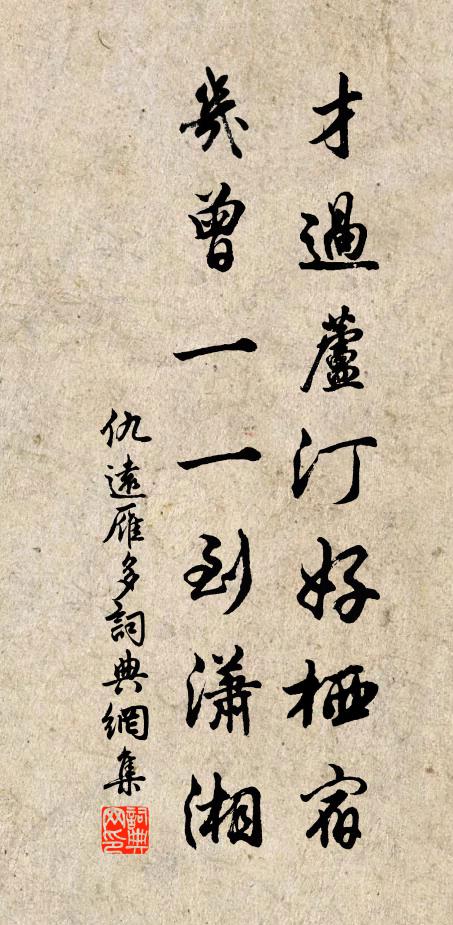 才過蘆汀好栖宿
幾曾一一到瀟湘
仇遠雁多詞典網集
詞典網印